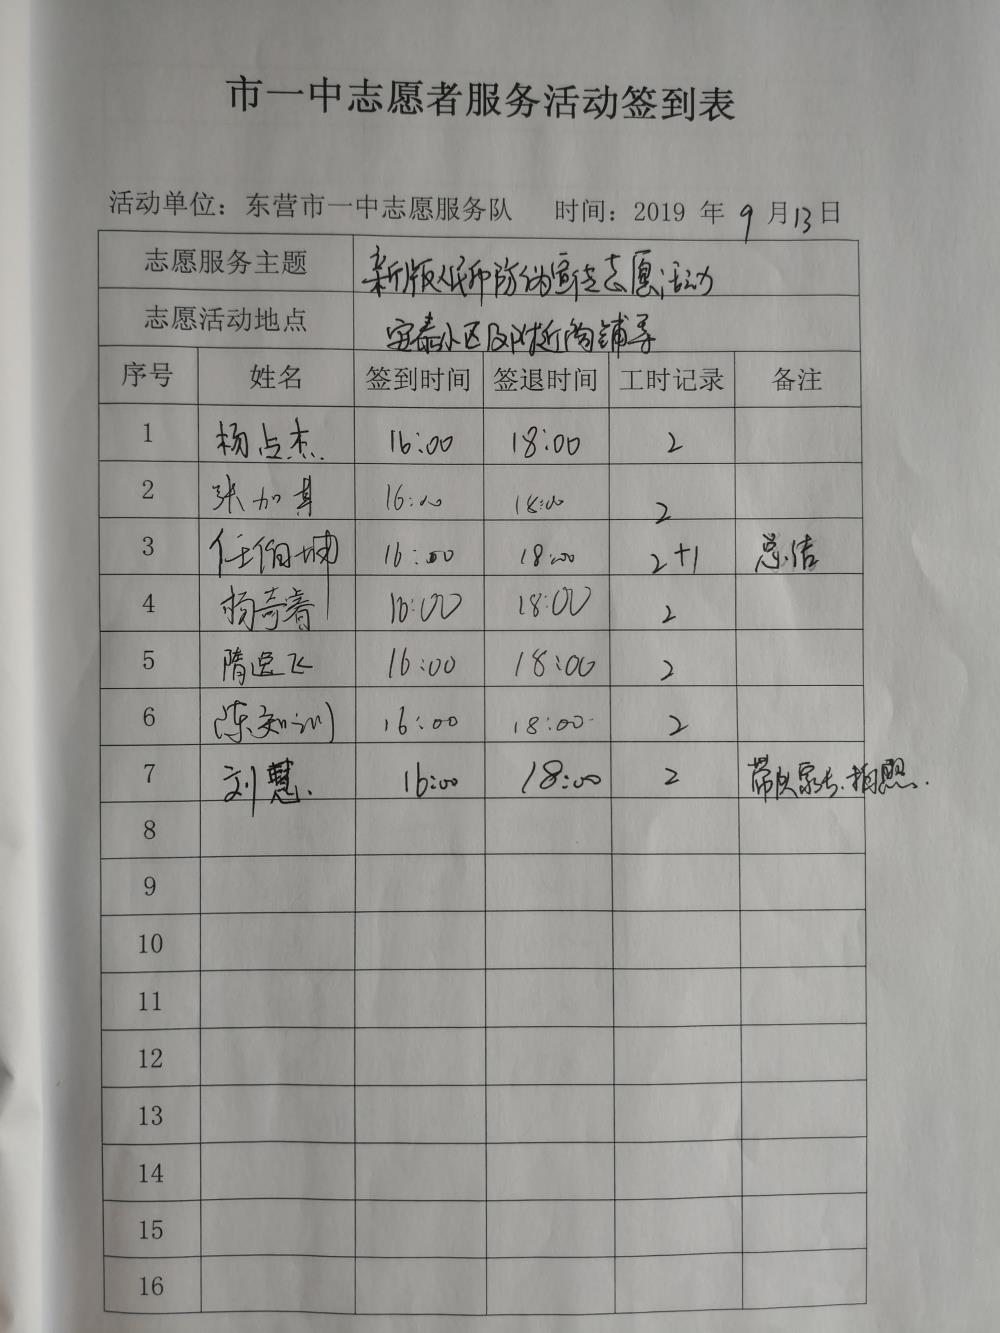 市一中志愿者服务活动签到表
活动单位：东营市一中志愿服务队 时间：2019 年 9 月 13 日
志愿服务主题 新版人民币防伪宣传志愿活动
志愿活动地点 安泰小区及附近商铺等
序号 姓名 签到时间 签退时间 工时记录 备注
1 杨占杰 16:00 18:00 2
2 张加其 16:00 18:00 2
3 任伯坤 16:00 18:00 2+1 总结
4 杨奇睿 16:00 18:00 2
5 隋逸飞 16:00 18:00 2
6 陈知训 16:00 18:00 2
7 刘慧 16:00 18:00 2 带队家长.拍照.
8
9
10
11
12
13
14
15
16